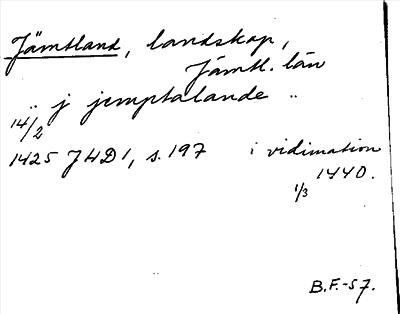 Jämtland, landskap,
Jämtl. län
.. j jemptalande ..
14/2
1425 JHD1, s. 197 i vidimation
1/3 1440.
B.F.-57.